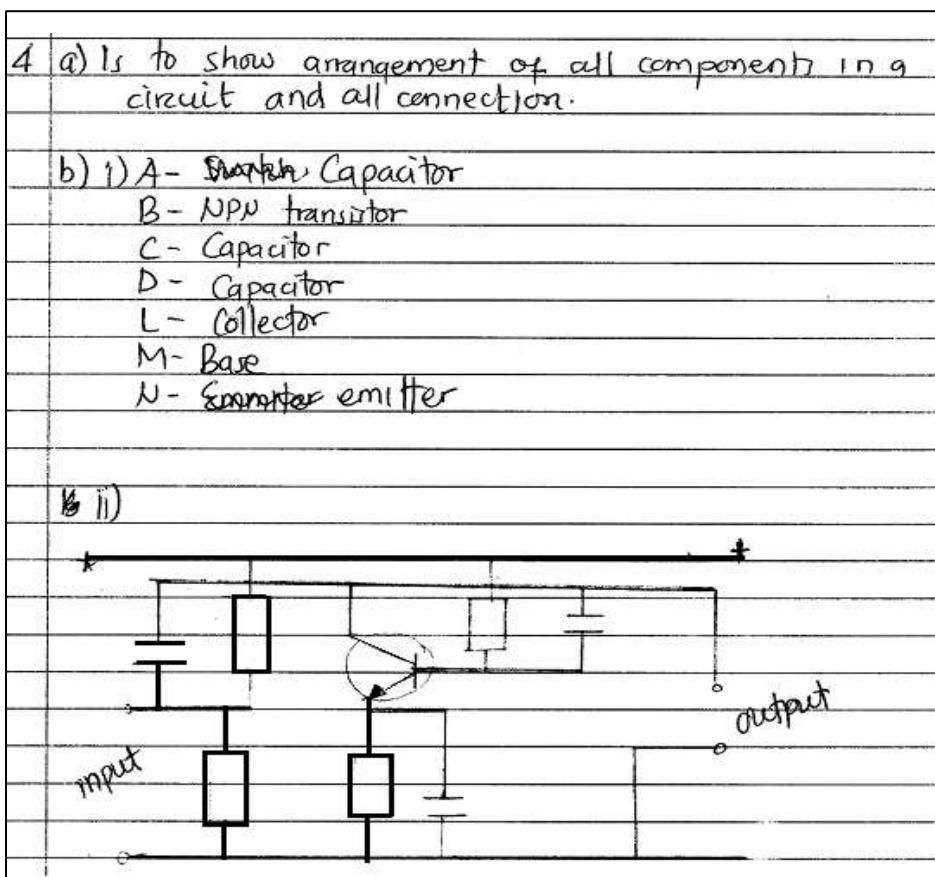 4 a) Is to show arrangement of all components in a
circuit and all connection.
b) i) A- Capacitor
B- NPN transistor
C- Capacitor
D- Capacitor
L- Collector
M- Base
N- emitter
ii)
+
output
input